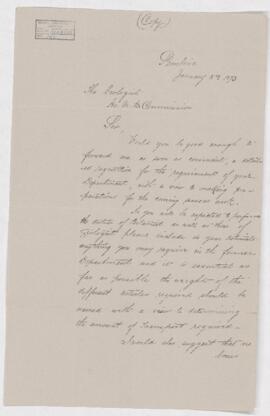 (Copy)
January 8th 1873
The Geologist
H. M. B. Commission
Sir,
Would you be good enough to
forward me as soon as convenient, a detail-
ed requisition for the requirements of your
Department, with a view to making pre-
parations for the coming seasons work.
As you will be expected to perform
the duties of Botanist as well as those of
Geologist please include in your estimate
anything you may require in the former
Department and it is essential as
far as possible the weight of the
different articles required should be
named with a view to determining
the amount of Transport required.
I would also suggest that no